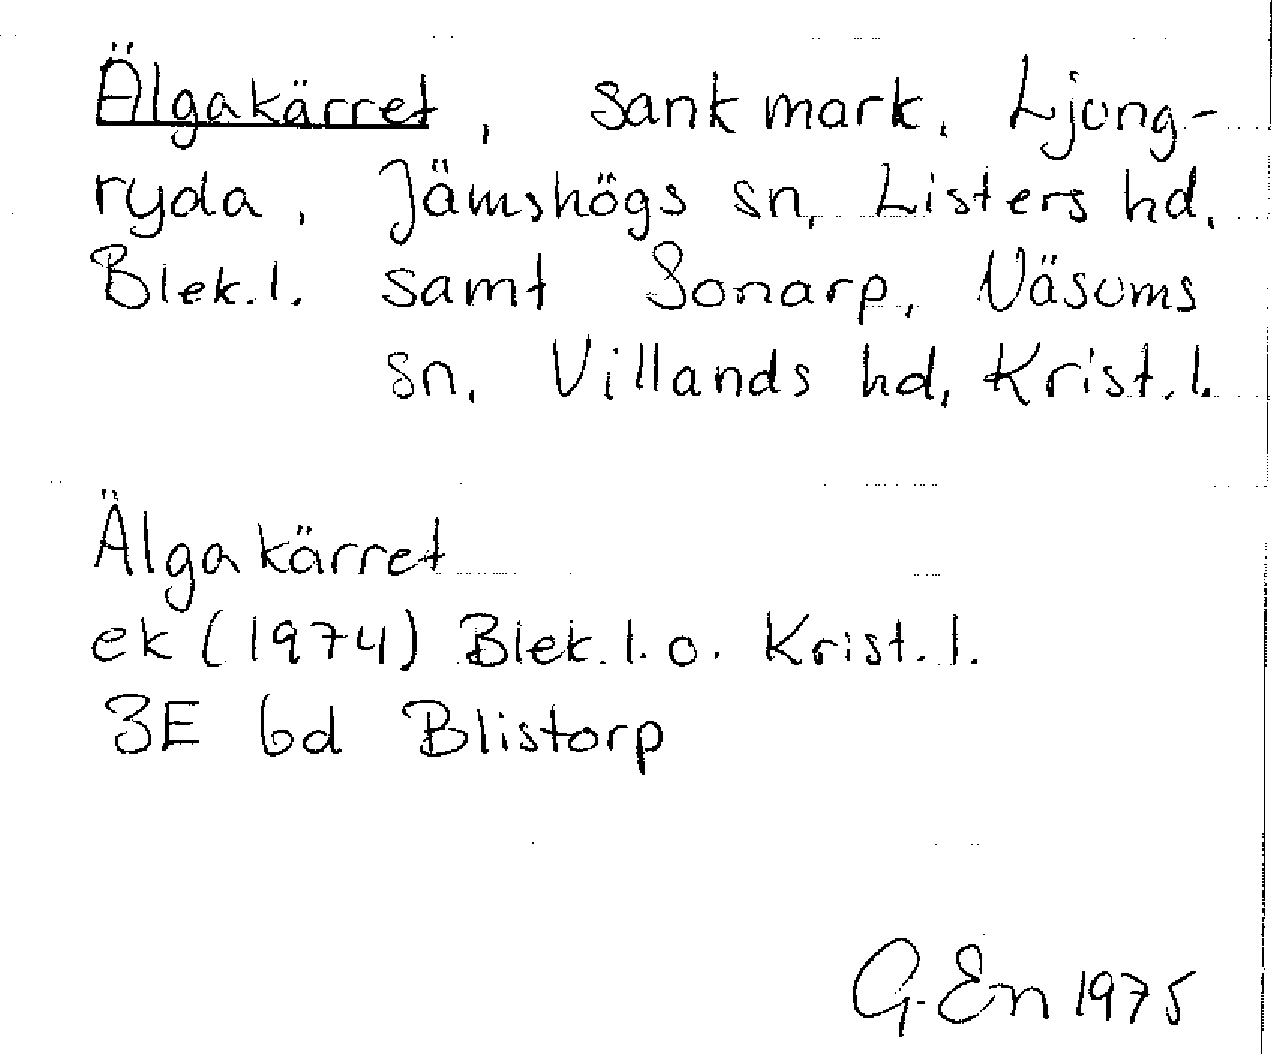 Älgakärret, sank mark. Ljung-
ryda, Jämshögs sn, Listers hd,
Blek.l. samt Sonarp, Näsums
sn, Villands hd, Krist.l.
Älgakärret
ek (1974) Blek.l. o. Krist.l.
3E 6d Blistorp
G. En 1975